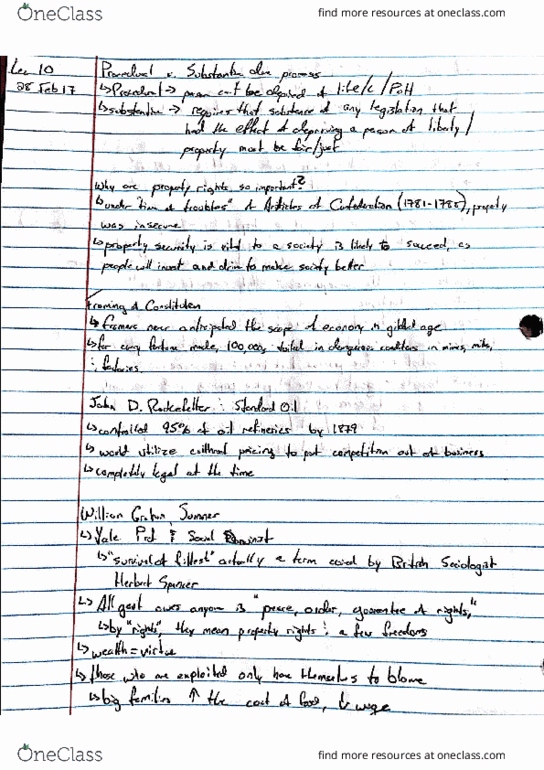 OneClass
find more resources at oneclass.com
Lec 10
28 Feb 17
Procedural v. Substantive due process
↳ Procedural → person can't be deprived of life/L/PoH
↳ substantive → requires that substance of any legislation that
had the effect of depriving a person of liberty/
property must be fair/just
Why are property rights so important?
↳ under "time of troubles" of Articles of Confederation (1781-1788), property
was insecure
↳ property security is vital to a society is likely to succeed, as
people will invest and drive to make society better
Framing of Constitution
↳ framers never anticipated the scope of economy in gilded age
↳ for every fortune made, 100,000s toiled in dangerous conditions in mines, mills,
factories.
John D. Rockefeller : Standard Oil
↳ controlled 95% of oil refineries by 1879
↳ would utilize cutthroat pricing to put competition out of business
↳ completely legal at the time
William Graham Sumner
↳ Yale Prof & Social Darwinist
↳ "survival of fittest" actually a term coined by British Sociologist
Herbert Spencer
↳ All govt owes anyone is "peace, order, guarantee of rights,"
↳ by "rights", they mean property rights & a few freedoms
↳ wealth = virtue
↳ those who are exploited only have themselves to blame
↳ big families ↑ the cost of food, ↓ wage
OneClass
find more resources at oneclass.com